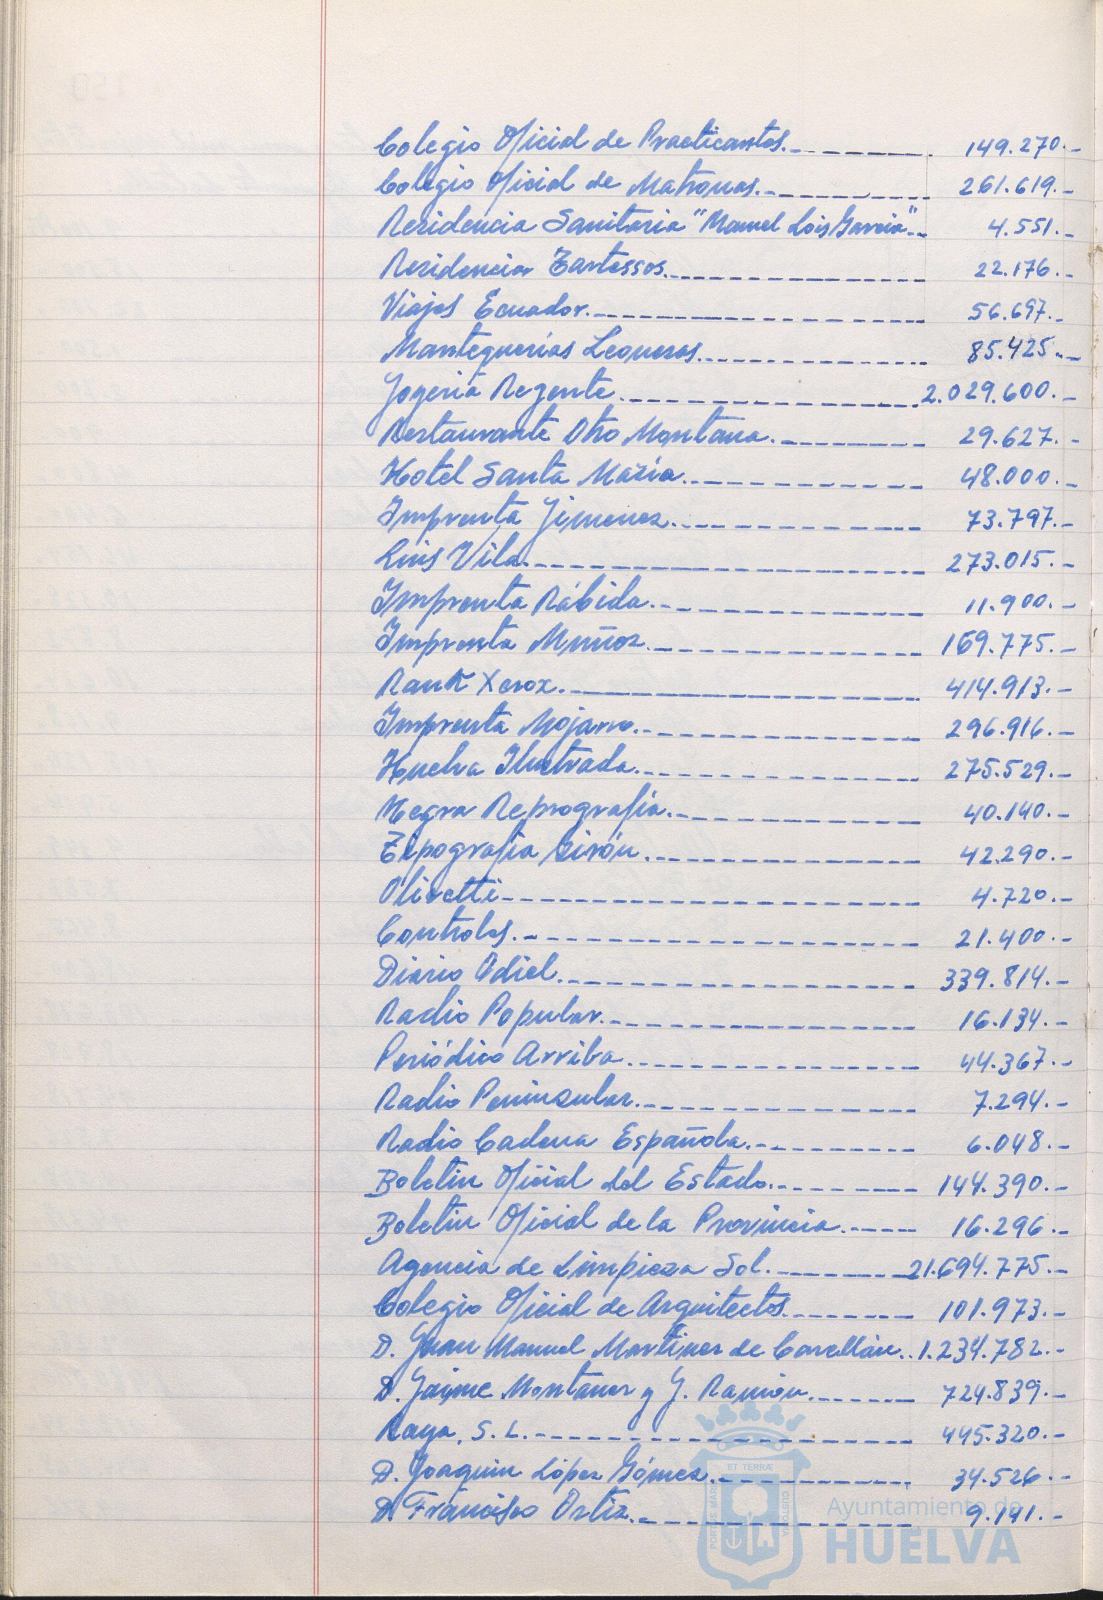 Colegio Oficial de Practicantes.- 149.270.-
Colegio Oficial de Matronas.- 261.619.-
Residencia Sanitaria "Manuel Lois García".- 4.551.-
Residencia Tartessos.- 22.176.-
Viajes Ecuador.- 56.697.-
Mantequerías Leoneras.- 85.425.-
Joyería Regente.- 2.029.600.-
Restaurante Otro Montana.- 29.627.-
Hotel Santa María.- 48.000.-
Imprenta Jimenez.- 73.797.-
Luis Vila.- 273.015.-
Imprenta Rábida.- 11.900.-
Imprenta Muñoz.- 169.775.-
Rank Xerox.- 414.913.-
Imprenta Mojarro.- 296.916.-
Huelva Ilustrada.- 275.529.-
Negra Reprografía.- 40.140.-
Tipografía Girón.- 42.290.-
Olivetti 4.720.-
Controles.- 21.400.-
Diario Odiel.- 339.814.-
Radio Popular.- 16.134.-
Periódico Arriba.- 44.367.-
Radio Peninsular.- 7.294.-
Radio Cadena Española.- 6.048.-
Boletín Oficial del Estado.- 144.390.-
Boletín Oficial de la Provincia.- 16.296.-
Agencia de Limpieza Sol.- 21.694.775.-
Colegio Oficial de Arquitectos.- 101.973.-
D. Juan Manuel Martínez de 1.234.782.-
D. Jaime Montaner y J. Ramón.- 724.839.-
Raya, S.L.- 445.320.-
D. Joaquín López Gómez.- 34.526.-
D. Francisco Ortiz.- 9.141.-
ET TERRÆ
PORTUS MARIS
CUSTODIA
Ayuntamiento de
HUELVA